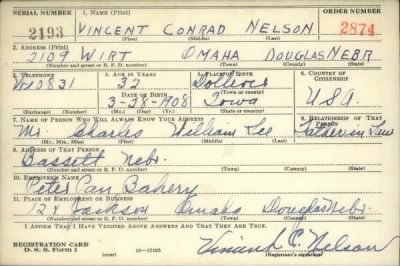 SERIAL NUMBER 1. NAME (Print) ORDER NUMBER
2193 VINCENT CONRAD NELSON 2874
(First) (Middle) (Last)
2. ADDRESS (Print)
2109 WIRT OMAHA DOUGLAS NEBR
(Number and street or R. F. D. number) (Town) (County) (State)
3. TELEPHONE 4. AGE IN YEARS 5. PLACE OF BIRTH 6. COUNTRY OF CITIZENSHIP
0831 32
DATE OF BIRTH (Town or county)
3-28-1908 Iowa U.S.A.
(Exchange) (Number) (Mo.) (Day) (Yr.) (State or country)
7. NAME OF PERSON WHO WILL ALWAYS KNOW YOUR ADDRESS 8. RELATIONSHIP OF THAT PERSON
Mr. Charles William Lee Father in Law
(Mr., Mrs., Miss) (First) (Middle) (Last)
9. ADDRESS OF THAT PERSON
Bassett Nebr.
(Number and street or R. F. D. number) (Town) (County) (State)
10. EMPLOYER'S NAME
Peter Pan Bakery
11. PLACE OF EMPLOYMENT OR BUSINESS
Jackson Omaha Douglas Nebr.
(Number and street or R. F. D. number) (Town) (County) (State)
I AFFIRM THAT I HAVE VERIFIED ABOVE ANSWERS AND THAT THEY ARE TRUE.
REGISTRATION CARD
D. S. S. Form 1 (over) 16-17105 Vincent C. Nelson
(Registrant's signature)